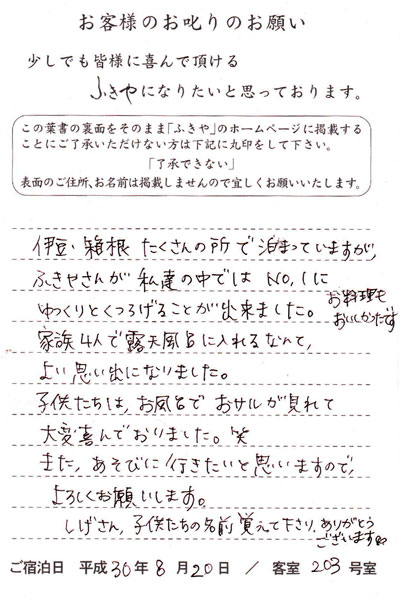 お客様のお叱りのお願い
少しでも皆様に喜んで頂ける
ふきやになりたいと思っております。
この葉書の裏面をそのまま「ふきや」のホームページに掲載する
ことにご了承いただけない方は下記に丸印をして下さい。
「了承できない」
表面のご住所、お名前は掲載しませんので宜しくお願いいたします。
伊豆・箱根 たくさんの所で泊まっていますが、
ふきやさんが 私達の中では NO,1に
ゆっくりとくつろげることが出来ました。
お料理も
おいしかたです
家族4人で露天風呂に入れるなんて、
よい思い出になりました。
子供たちは、お風呂で おサルが見れて
大変喜んでおりました。笑
また、あそびに行きたいと思いますので、
よろしくお願いします。
しげさん、子供たちの名前覚えて下さり、ありがとう
ございます
ご宿泊日 平成30年8月20日 / 客室 203 号室